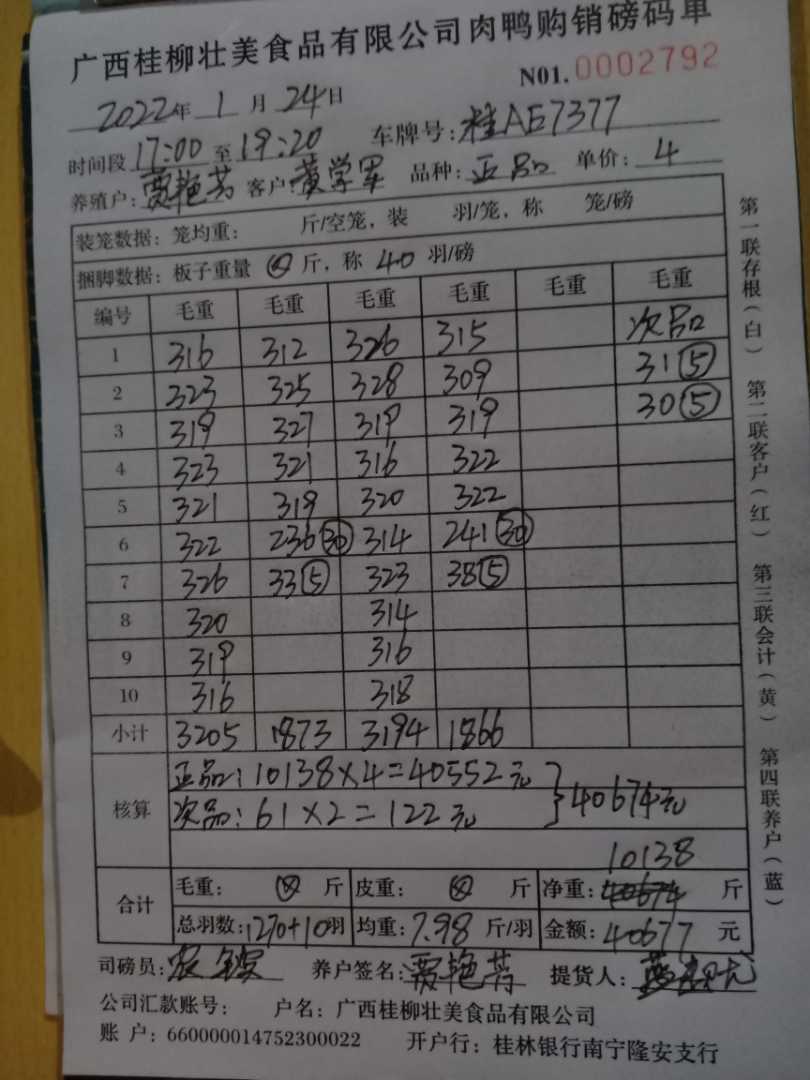 广西桂柳壮美食品有限公司肉鸭购销磅码单
N01. 0002792
2022年 1 月 24日
时间段 17:00 至 19:20 车牌号: 桂AE7377
养殖户: 贾艳芳 客户 黄学军 品种: 正品 单价: 4
装笼数据: 笼均重: 斤/空笼, 装 羽/笼, 称 笼/磅
捆脚数据: 板子重量 斤, 称 40 羽/磅
编号 毛重 毛重 毛重 毛重 毛重 毛重
1 316 312 326 315 次品
2 323 325 328 309 31 5
3 319 327 319 319 30 5
4 323 321 316 322
5 321 319 320 322
6 322 236 30 314 241 30
7 326 33 5 323 38 5
8 320 314
9 319 316
10 316 318
小计 3205 1873 3194 1866
核算
正品: 10138×4=40552元
次品: 61×2=122元 } 40674元
10138
合计
毛重: 斤 皮重: 斤 净重: 40674 斤
总羽数: 1270+10羽 均重: 7.98 斤/羽 金额: 40677 元
司磅员: 养户签名: 贾艳芳 提货人:
公司汇款账号: 户名: 广西桂柳壮美食品有限公司
账 户: 660000014752300022 开户行: 桂林银行南宁隆安支行
第一联存根(白) 第二联客户(红) 第三联会计(黄) 第四联养户(蓝)